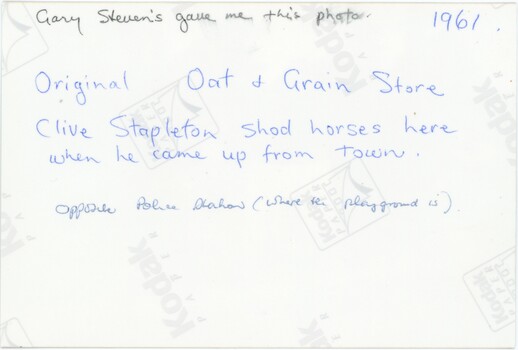 Gary Steven's gave me this photo. 1961.
Original Oat & Grain Store
Clive Stapleton shod horses here
when he came up from town.
Opposite Police Station (where the playground is).
Kodak